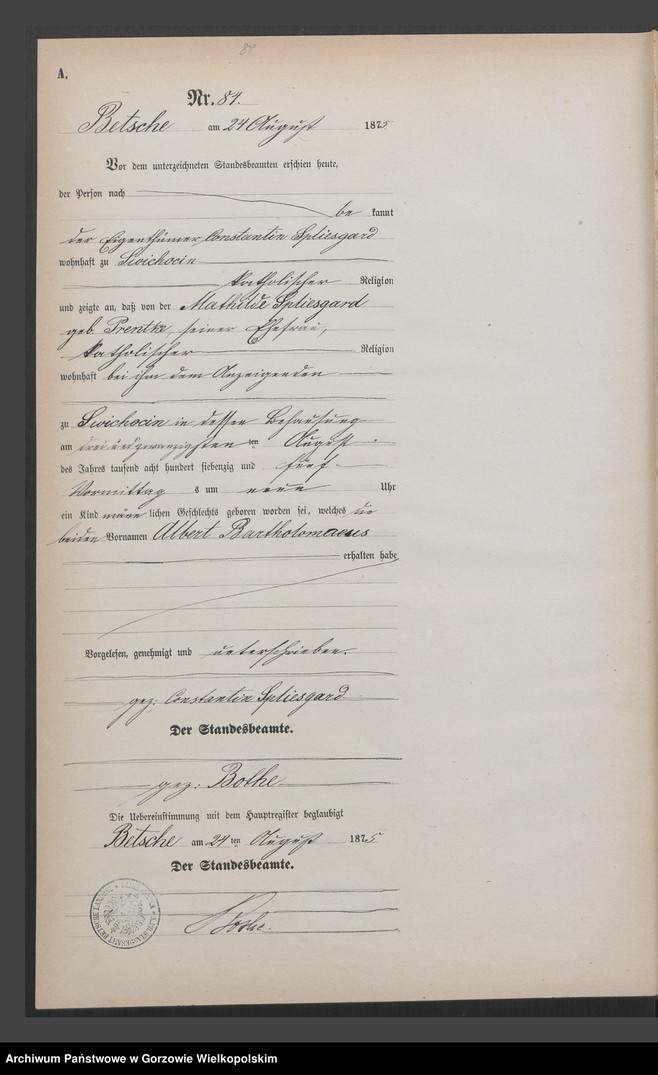 84
A.
Nr. 84.
Betsche am 24 August 1875
Vor dem unterzeichneten Standesbeamten erschien heute,
der Person nach
be kannt
der Eigenthümer Constantin Spliesgard
wohnhaft zu Swichocin
katholischer Religion
und zeigte an, daß von der Mathilde Spliesgard
geb. Prentk, seiner Ehefrau,
katholischer Religion
wohnhaft bei ihm dem Anzeigenden
zu Swichocin in dessen Behausung
am dreiundzwanzigsten ten August
des Jahres tausend acht hundert siebenzig und fünf
Vormittag s um neun Uhr
ein Kind männ lichen Geschlechts geboren worden sei, welches die
beiden Vornamen Albert Bartholomaeus
erhalten habe
Vorgelesen, genehmigt und unterschrieben.
gez: Constantin Spliesgard
Der Standesbeamte.
gez: Bothe
Die Uebereinstimmung mit dem Hauptregister beglaubigt
Betsche am 24 ten August 1875
Der Standesbeamte.
Bothe.
Archiwum Państwowe w Gorzowie Wielkopolskim